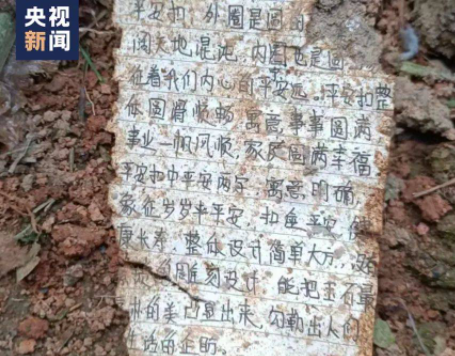 央视新闻
平安扣，外圈是圆的
天地混沌，内圈也是圆
征着我们内心的平安远。平安扣整
体圆滑顺畅，寓意，事事圆满
事业一帆风顺，家庭圆满幸福
平安扣中平安两字，寓意，明确
象征岁岁平平安，扣住平安，健
康长寿，整体设计简单大方，
雕刻设计，能把玉石最
的美凸显出来，勾勒出人们
生活的正